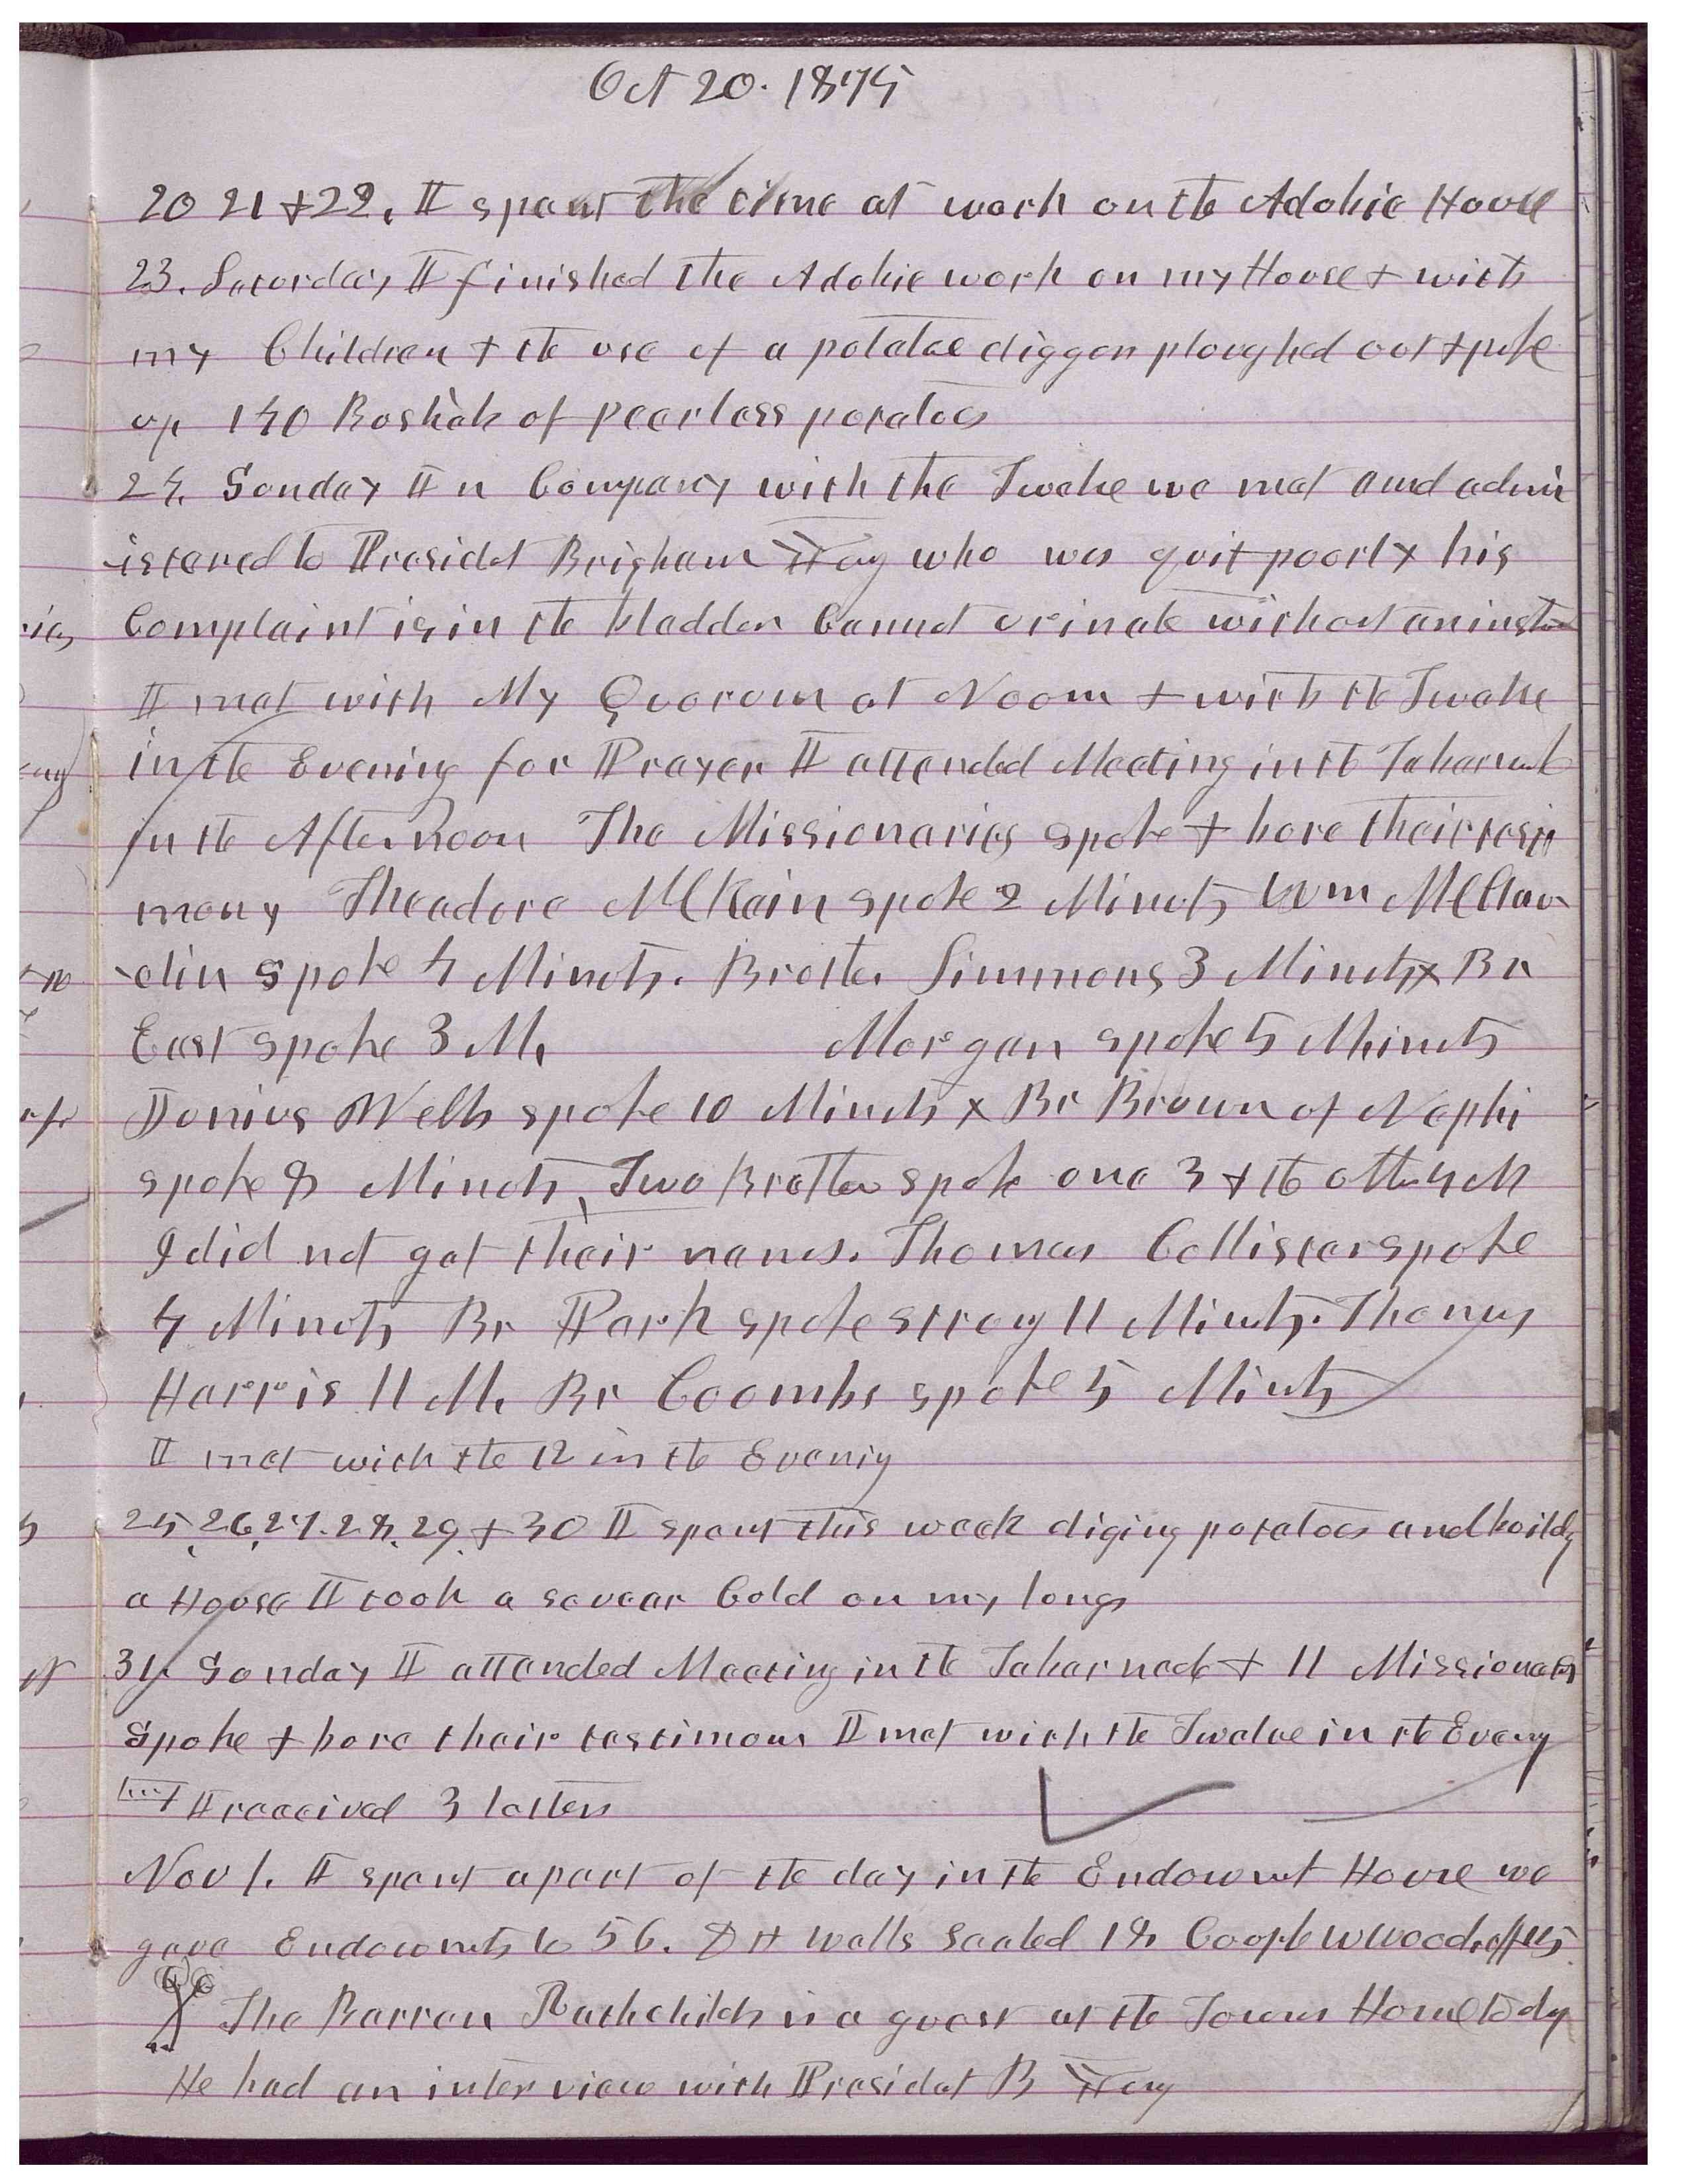 Oct 20. 1875
20 21 + 22. I spent the time at work on the Adobie House
23. Saturday I finished the Adobie work on my House + with
my Children + the use of a potatoe digger ploughed out + pike
up 140 Bushels of peerless potatoes
24. Sunday I n Company with the Twelve we met and admin
-istered to Presidet Brigham Young who was quit poorly his
Complaint is in the bladder Cannot urinate without an inst
I met with My Quorum at Noom + with the Twelve
in the Evening for Prayer I attended Meeting in the Tabernacle
in the Afternoon The Missionaries spoke + bore their testi
mony Theadore McKain spoke 2 Minuts Wm McClau
-elin spoke 4 Minuts. Brother Simmons 3 Minuts x Br
East spoke 3 M. Morgan spoke 5 Minuts
Junius Wells spoke 10 Minuts x Br Brown of Nephi
spoke 8 Minuts, Two Brother spoke one 3 + the other 4 M
I did not get their names. Thomas Callister spoke
4 Minuts Br Park spoke strong 11 Minuts. Thomas
Harris 11 M. Br Coombs spoke 5 Minuts
I met with the 12 in the Evening
25, 26, 27. 28, 29, + 30 I spent this week diging potatoes and buildg
a House I took a sevear Cold on my lungs
31. Sunday I attended Meeting in the Tabernacle + 11 Missionaries
Spoke + bore their testimony I met with the Twelve in the Eveng
I received 3 letters
Nov 1. I spent a part of the day in the Endowmet House we
gave Endowmets to 56. D H Wells Sealed 18, Coople W Woodruff 15
The Barron Rothchilds is a guest at the Towns House to day
He had an interview with Presidet B Young